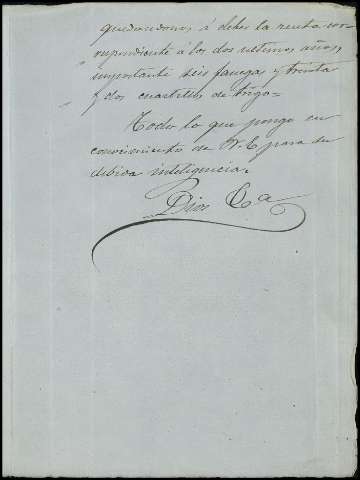 quedandonos á deber la renta cor-
respondiente á los dos ultimos años,
importante seis fanegas y treinta
y dos cuartillos de trigo=
Todo lo que pongo en
conocimiento de V. E. para su
debida inteligencia.
Dios &a